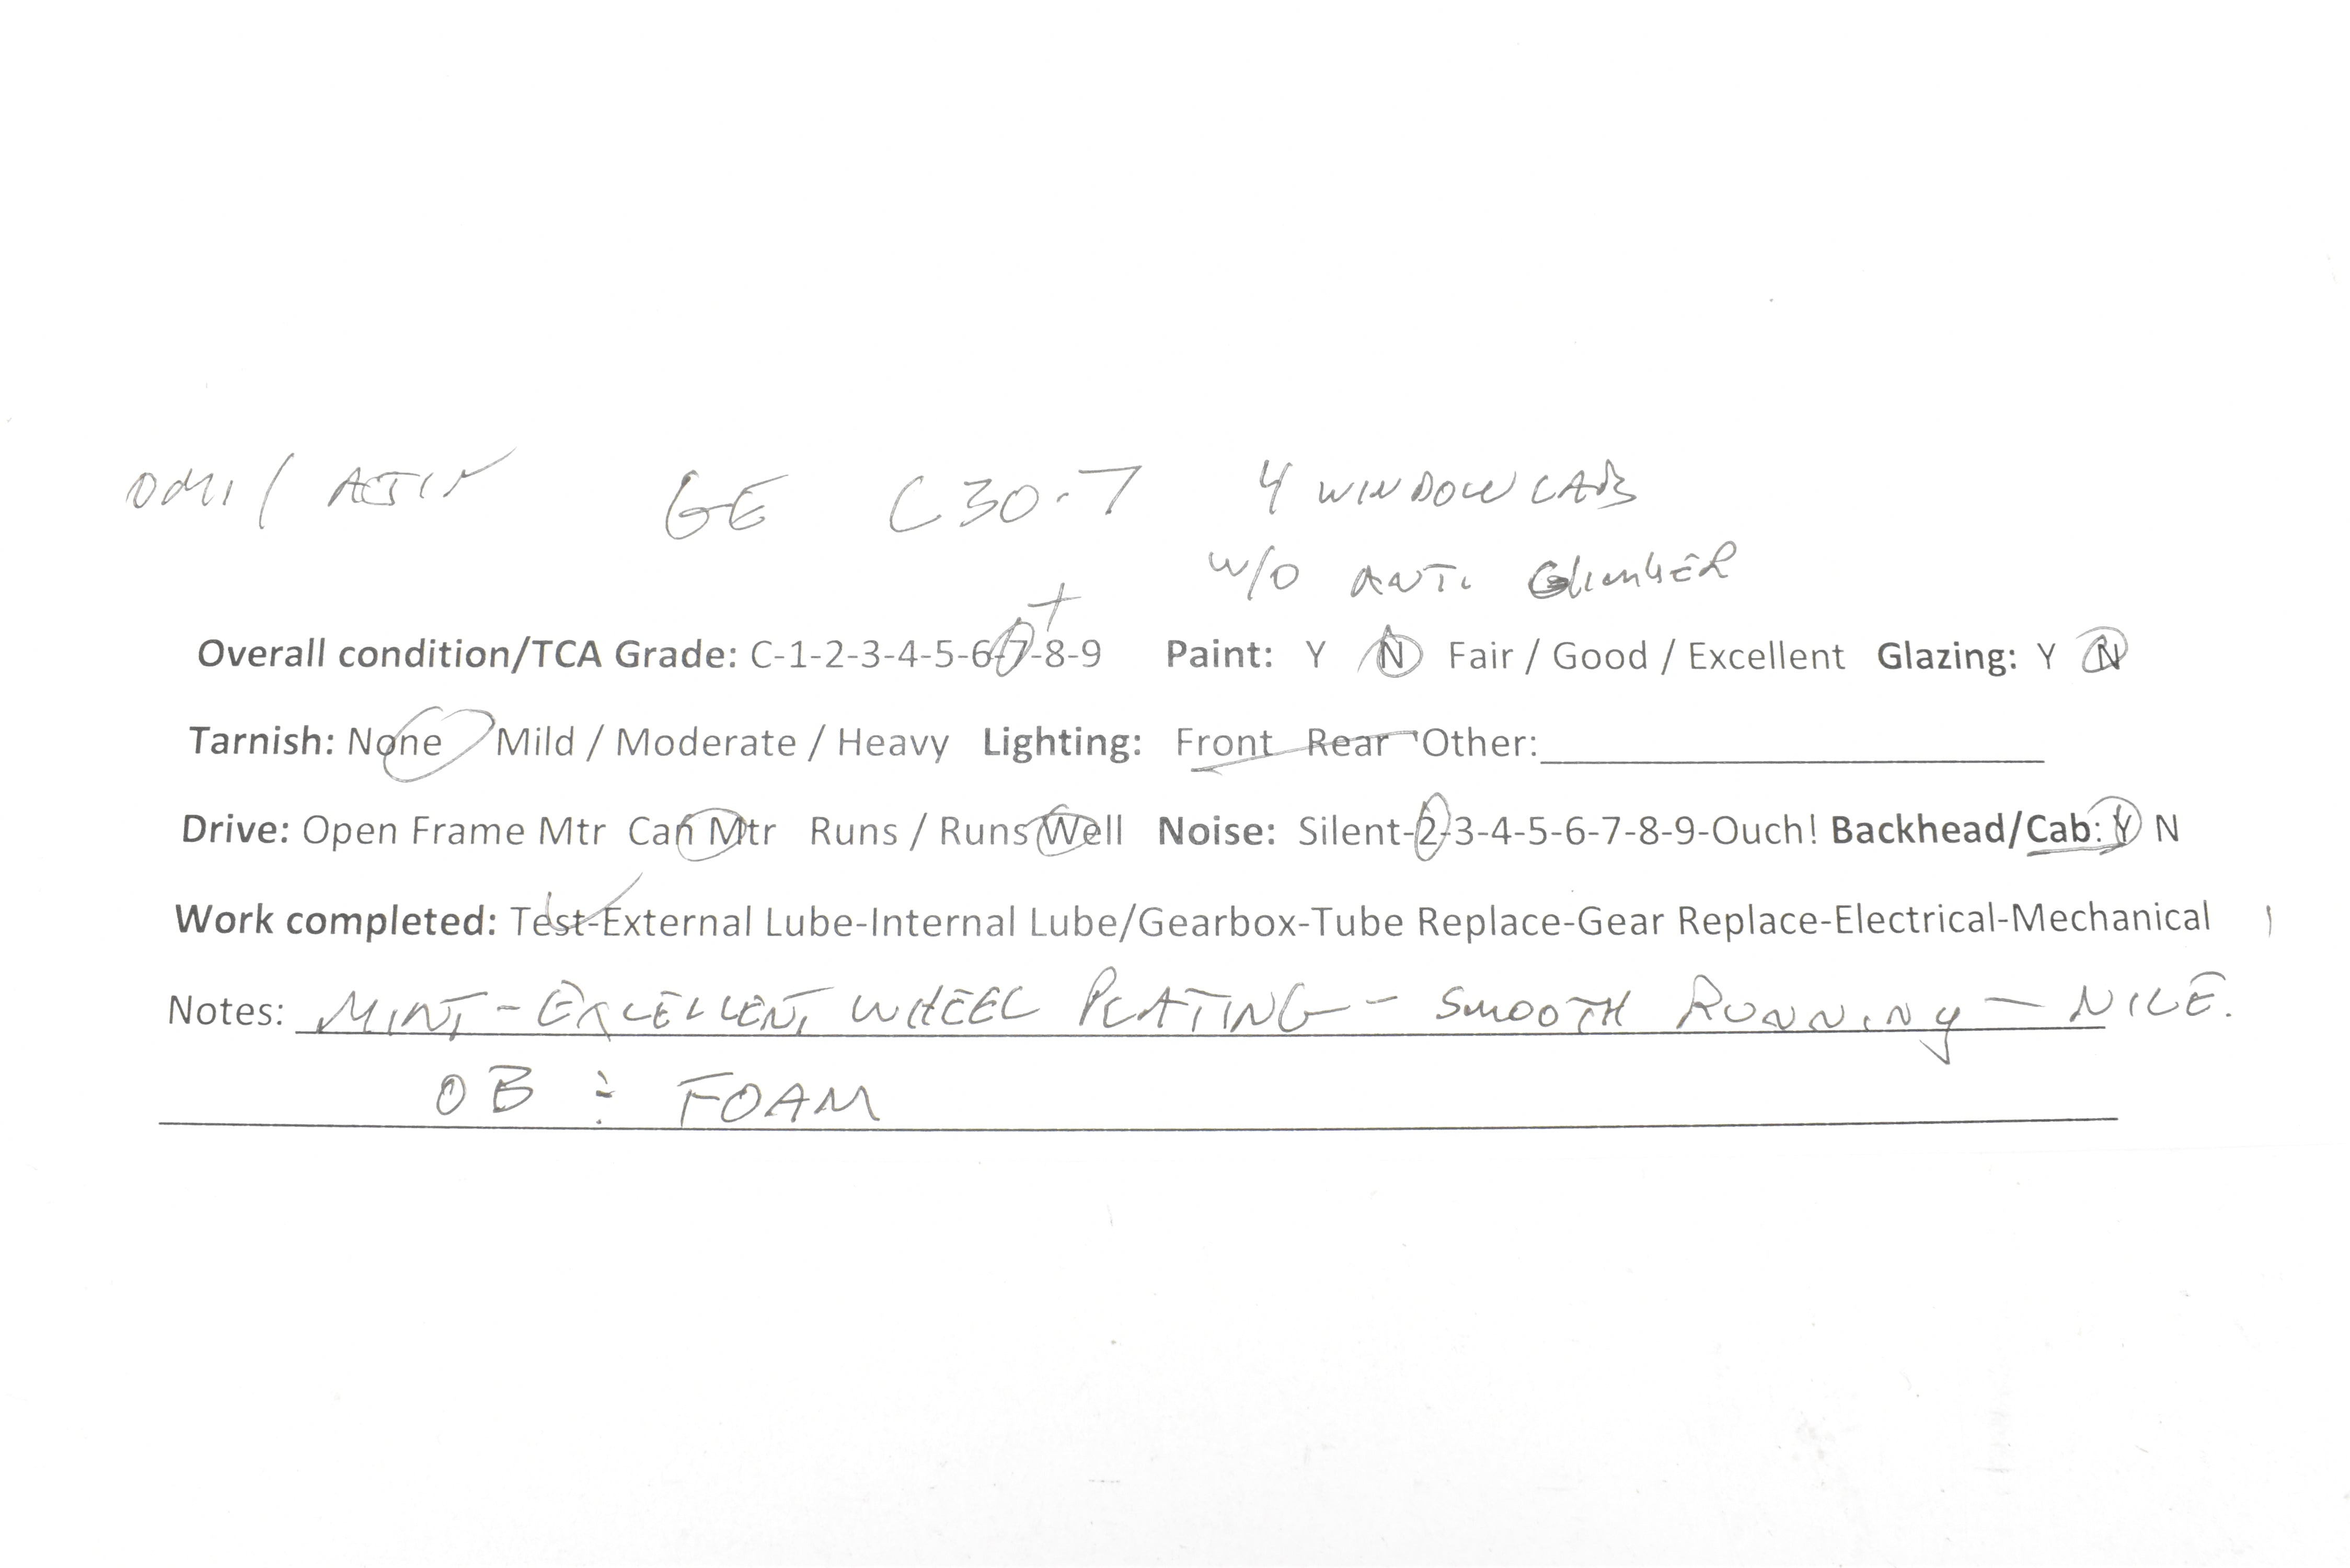 OMI / AJIN GE C30-7 4 WINDOW CAB
W/O ANTI CLIMBER
+
Overall condition/TCA Grade: C-1-2-3-4-5-6-7-8-9 Paint: Y N Fair / Good / Excellent Glazing: Y N
Tarnish: None Mild / Moderate / Heavy Lighting: Front Rear Other:
Drive: Open Frame Mtr Can Mtr Runs / Runs Well Noise: Silent-2-3-4-5-6-7-8-9-Ouch! Backhead/Cab: Y N
Work completed: Test-External Lube-Internal Lube/Gearbox-Tube Replace-Gear Replace-Electrical-Mechanical
Notes: MINT - EXCELLENT WHEEL PLATING - SMOOTH RUNNING - NICE.
OB ÷ FOAM